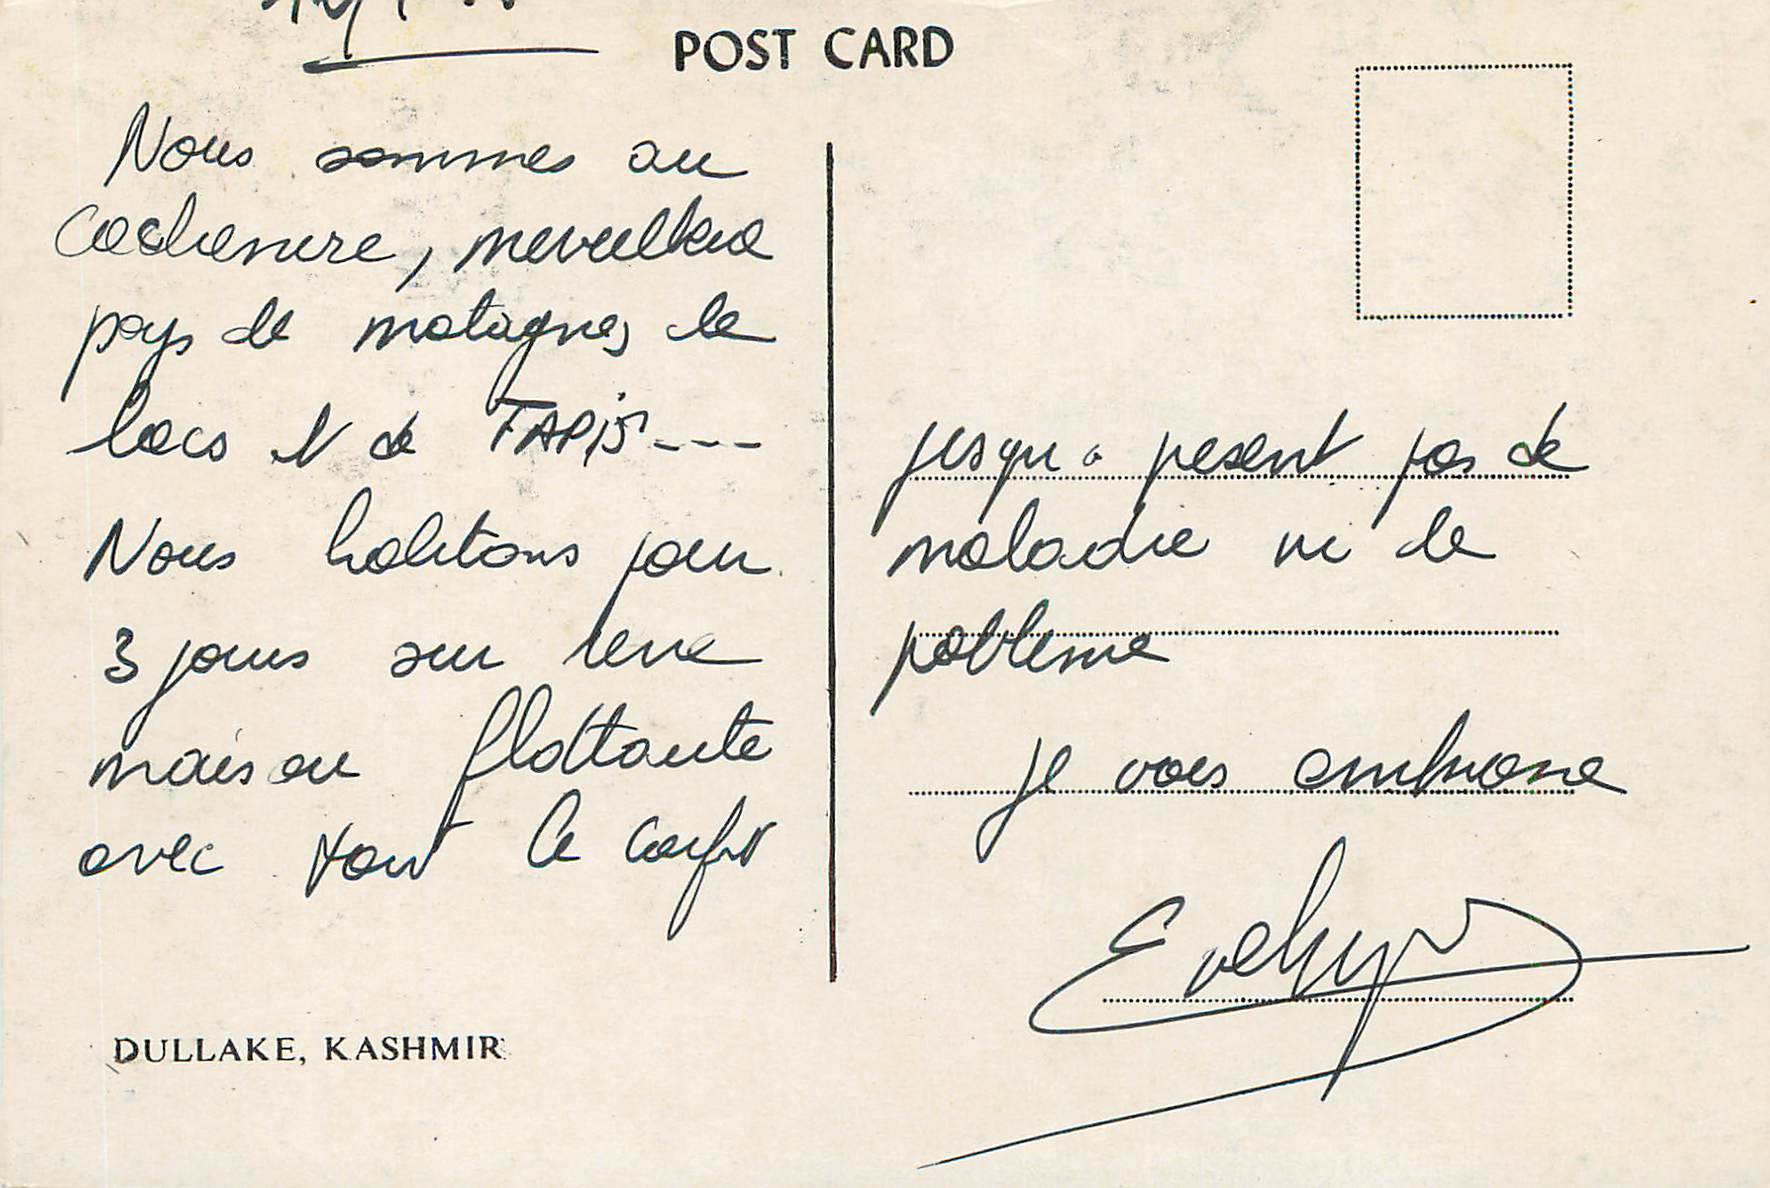 POST CARD
Nous sommes au
Cachemire, merveilleux
pays de motagnes de
lacs et de TAPIS ---
Nous habitons pour
3 jours sur une
maison flottante
avec tout le confort
DULLAKE, KASHMIR
jusqu'a present pas de
maladie ni de
probleme
je vous embrasse
Evelyne